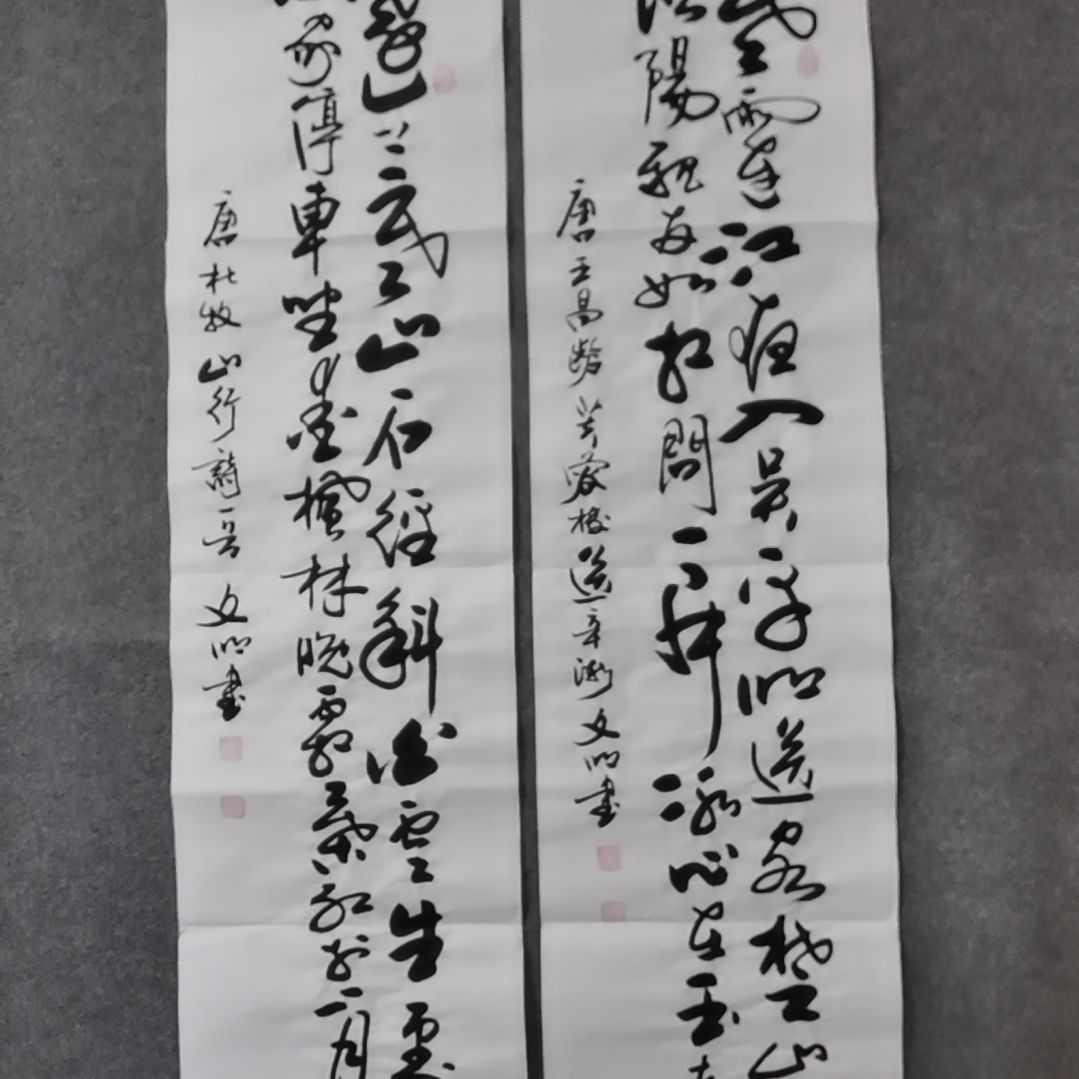 寒雨連江夜入吳平明送客楚山
洛陽親友如相問一片冰心在玉
唐王昌齡芙蓉樓送辛漸文明書
遠上寒山石徑斜白雲生處
家停車坐愛楓林晚霜葉紅於二月
唐杜牧山行詩一首文明書